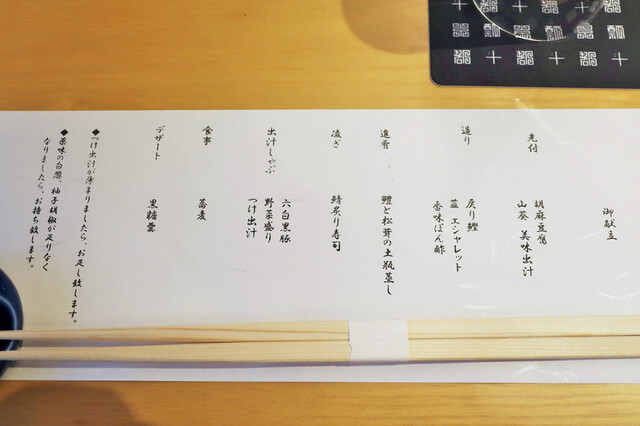 御献立
先付
胡麻豆腐
山葵 美味出汁
造り
戻り鰹
エシャレット
香味ぽん酢
進肴
鱧と松茸の土瓶蒸し
凌ぎ
鯖炙り寿司
出汁しゃぶ
六白黒豚
野菜盛り
つけ出汁
食事
蕎麦
デザート
黒糖羹
◆つけ出汁が薄まりましたら、お足し致します。
◆薬味の白葱、柚子胡椒が足りなく
なりましたら、お持ち致します。